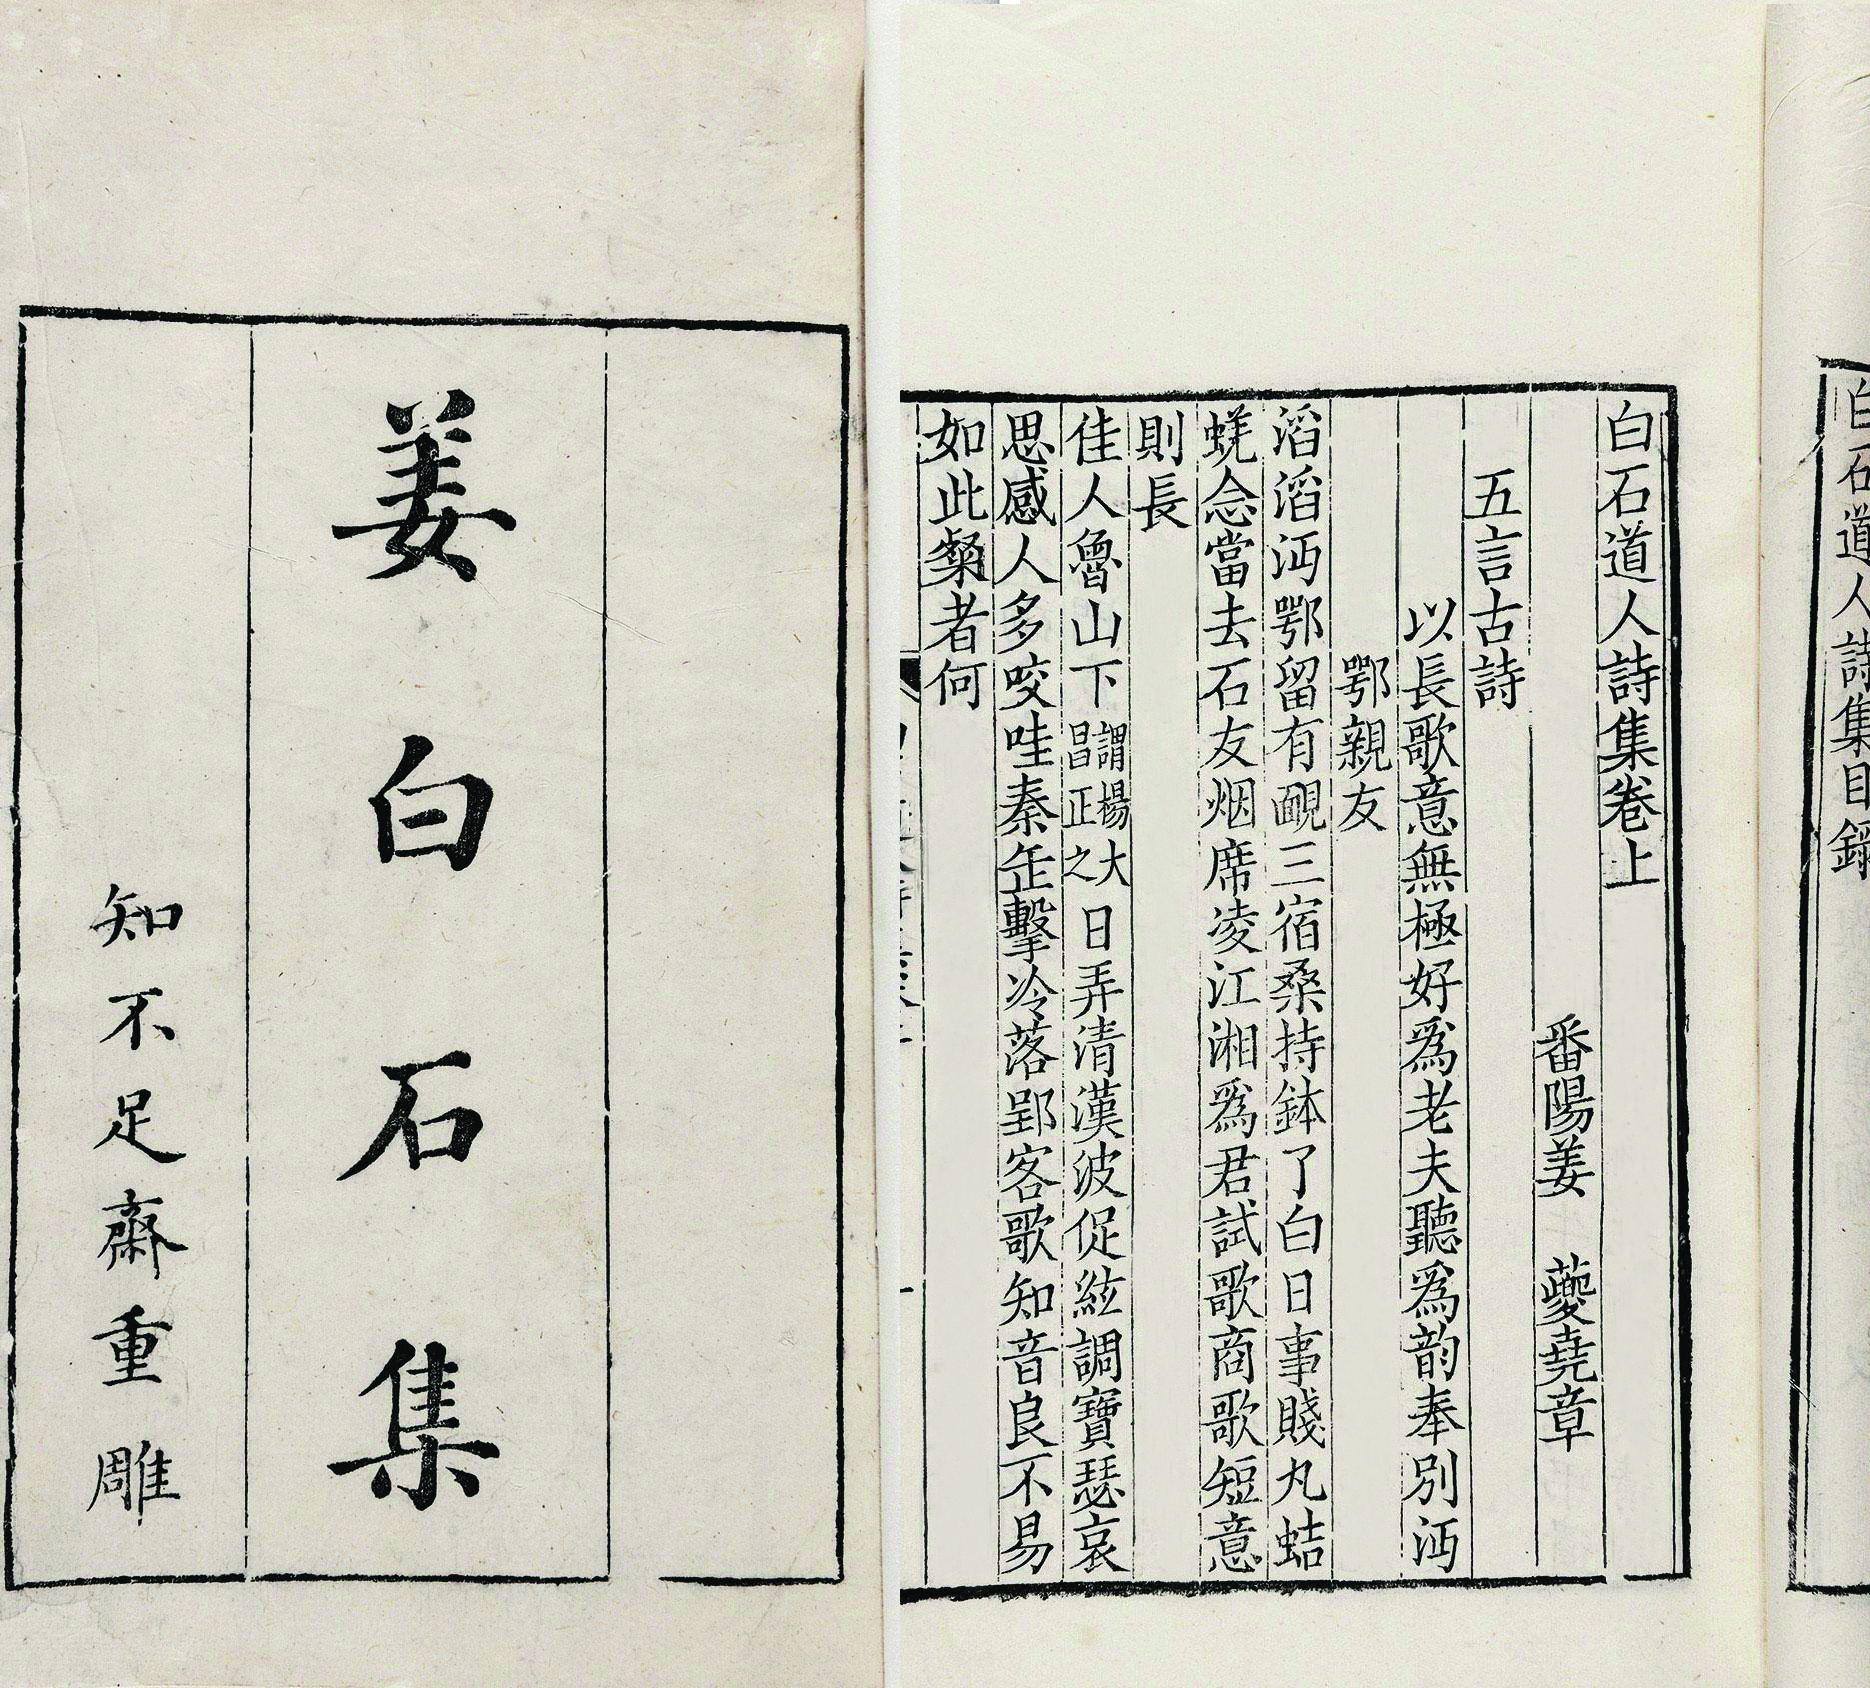 姜白石集
知不足齋重雕
白石道人詩集目錄
白石道人詩集卷上
番陽姜 蘷堯章
五言古詩
以長歌意無極好爲老夫聽爲韵奉別沔
鄂親友
滔滔沔鄂留有靦三宿桑持鉢了白日事賤丸蛣
蜣念當去石友烟席凌江湘爲君試歌商歌短意
則長
佳人魯山下謂楊大昌正之日弄清漢波促絃調寶瑟哀
思感人多咬哇秦缶擊冷落郢客歌知音良不易
如此粲者何